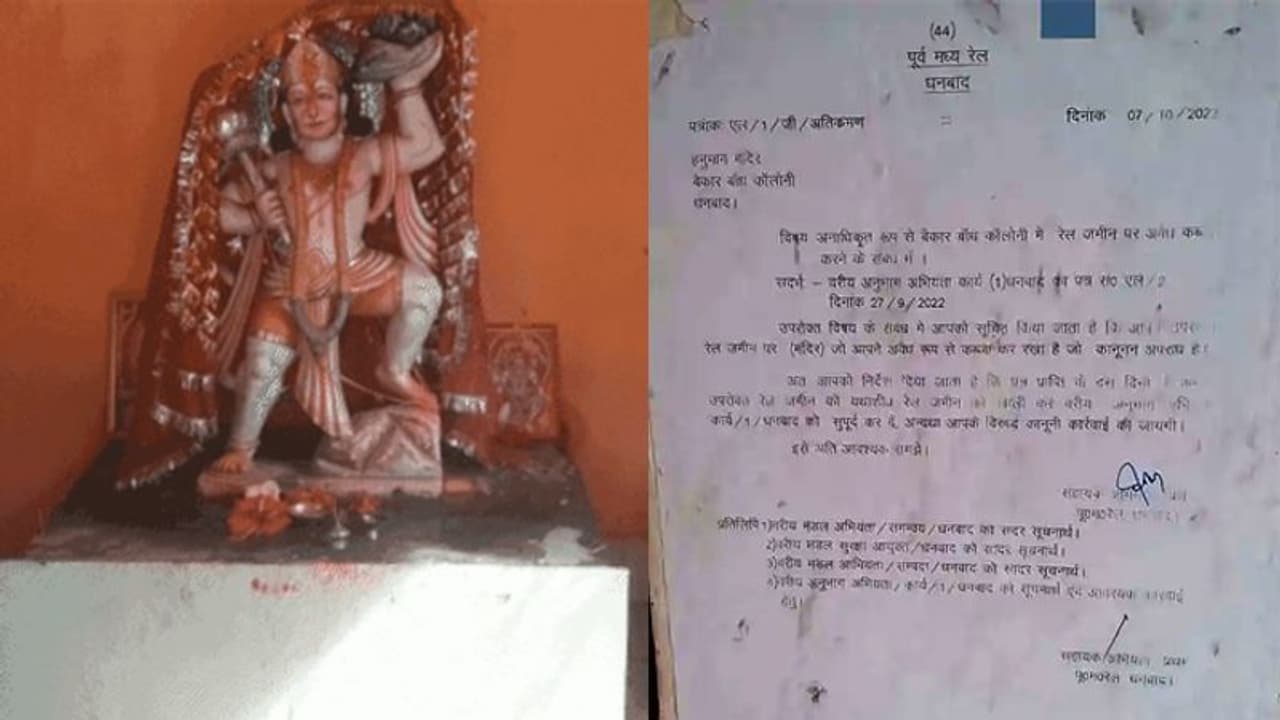 (44)
पूर्व मध्य रेल
धनबाद
पत्रांक एल/1/जी/अतिकमण
दिनांक 07/10/2022
हनुमान मंदिर
बेकार बांध कॉलोनी
धनबाद।
विषय अनाधिकृत रूप से बेकार बॉध कॉलोनी में रेल जमीन पर अवैध कब्
करने के संबंध में ।
सदर्भ – वरीय अनुभाग अभियंता कार्य (1)धनबाद का पत्र सं0 एल/2
दिनांक 27/9/2022
उपरोक्त विषय के संबंध में आपको सूचित किया जाता है कि
रेल जमीन पर (मंदिर) जो आपने अवैध रूप से कब्जा कर रखा है जो कानूनन अपराध है।
अतः आपको निर्देश दिया जाता है कि पत्र प्राप्ति के दस दिनों के
उपरोक्त रेल जमीन को यथाशीघ्र रेल जमीन को खाली कर वरीय अनुभाग
कार्य/1/धनबाद को सुपूर्द कर दें, अन्यथा आपके विरूद्ध कानूनी कार्रवाई की जायगी।
इसे अति आवश्यक समझे।
सहायक
पू०म०रेल धनबाद।
प्रतिलिपि 1)वरीय मंडल अभियंता/समन्वय/धनबाद को सादर सूचनार्थ।
2)वरीय मंडल सुरक्षा आयुक्त/धनबाद को सादर सूचनार्थ।
3)वरीय मंडल अभियंता/सम्पदा/धनबाद को सादर सूचनार्थ।
4)वरीय अनुभाग अभियंता/कार्य/1/धनबाद को सूचनार्थ एवं आवश्यक कारवाई
हेतु।
सहायक अभियंता
पू०म०रेल धनबाद।